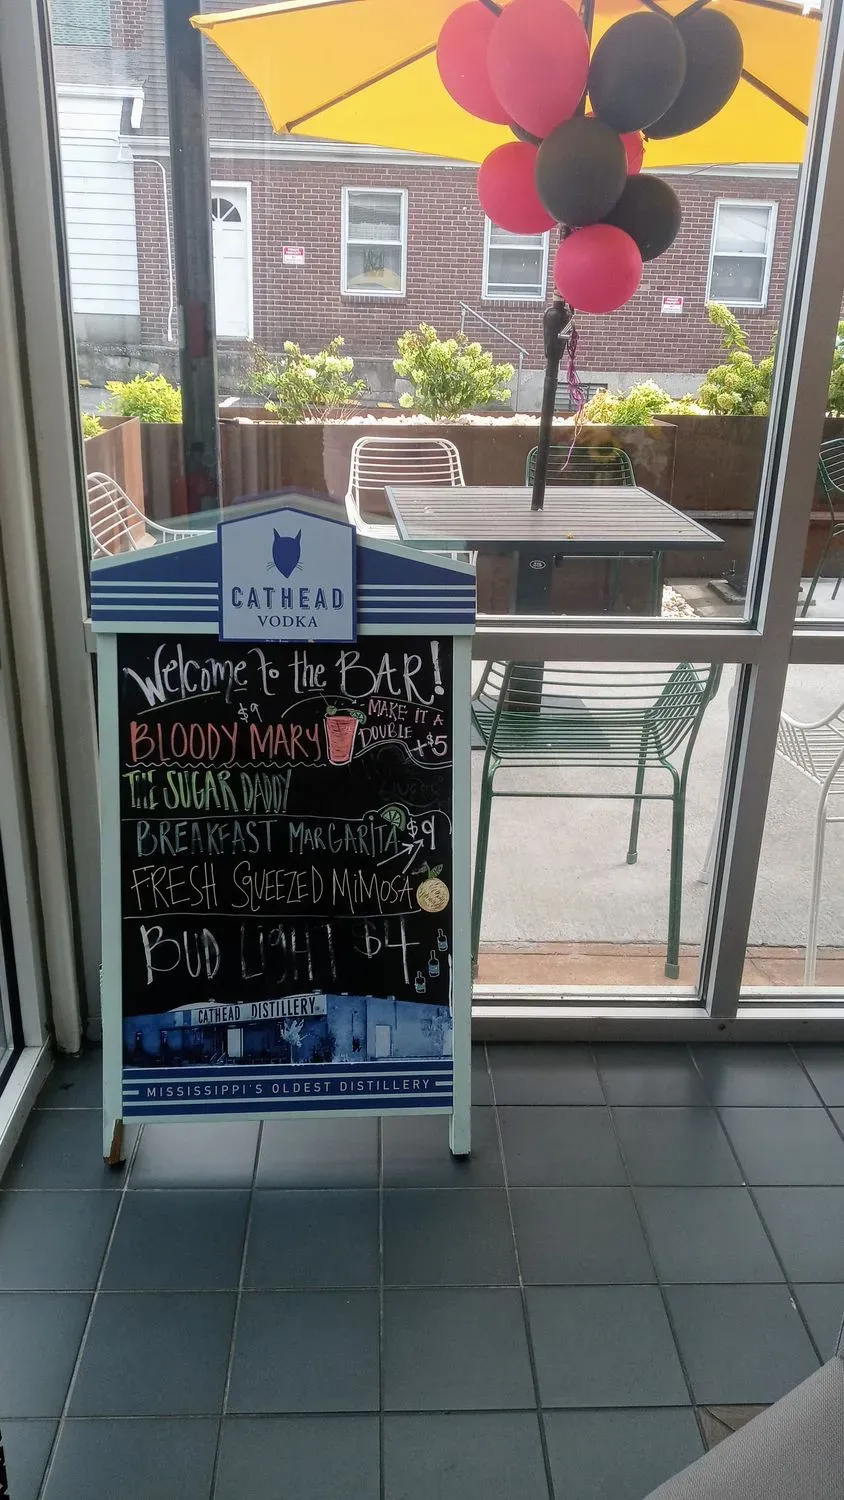 CATHEAD
VODKA
Welcome to the BAR!
$9
MAKE IT A
DOUBLE +$5
BLOODY MARY
THE SUGAR DADDY
BREAKFAST MARGARITA $9
FRESH SQUEEZED MiMOSA
BUD LIGHT $4
CATHEAD DISTILLERY
MISSISSIPPI'S OLDEST DISTILLERY